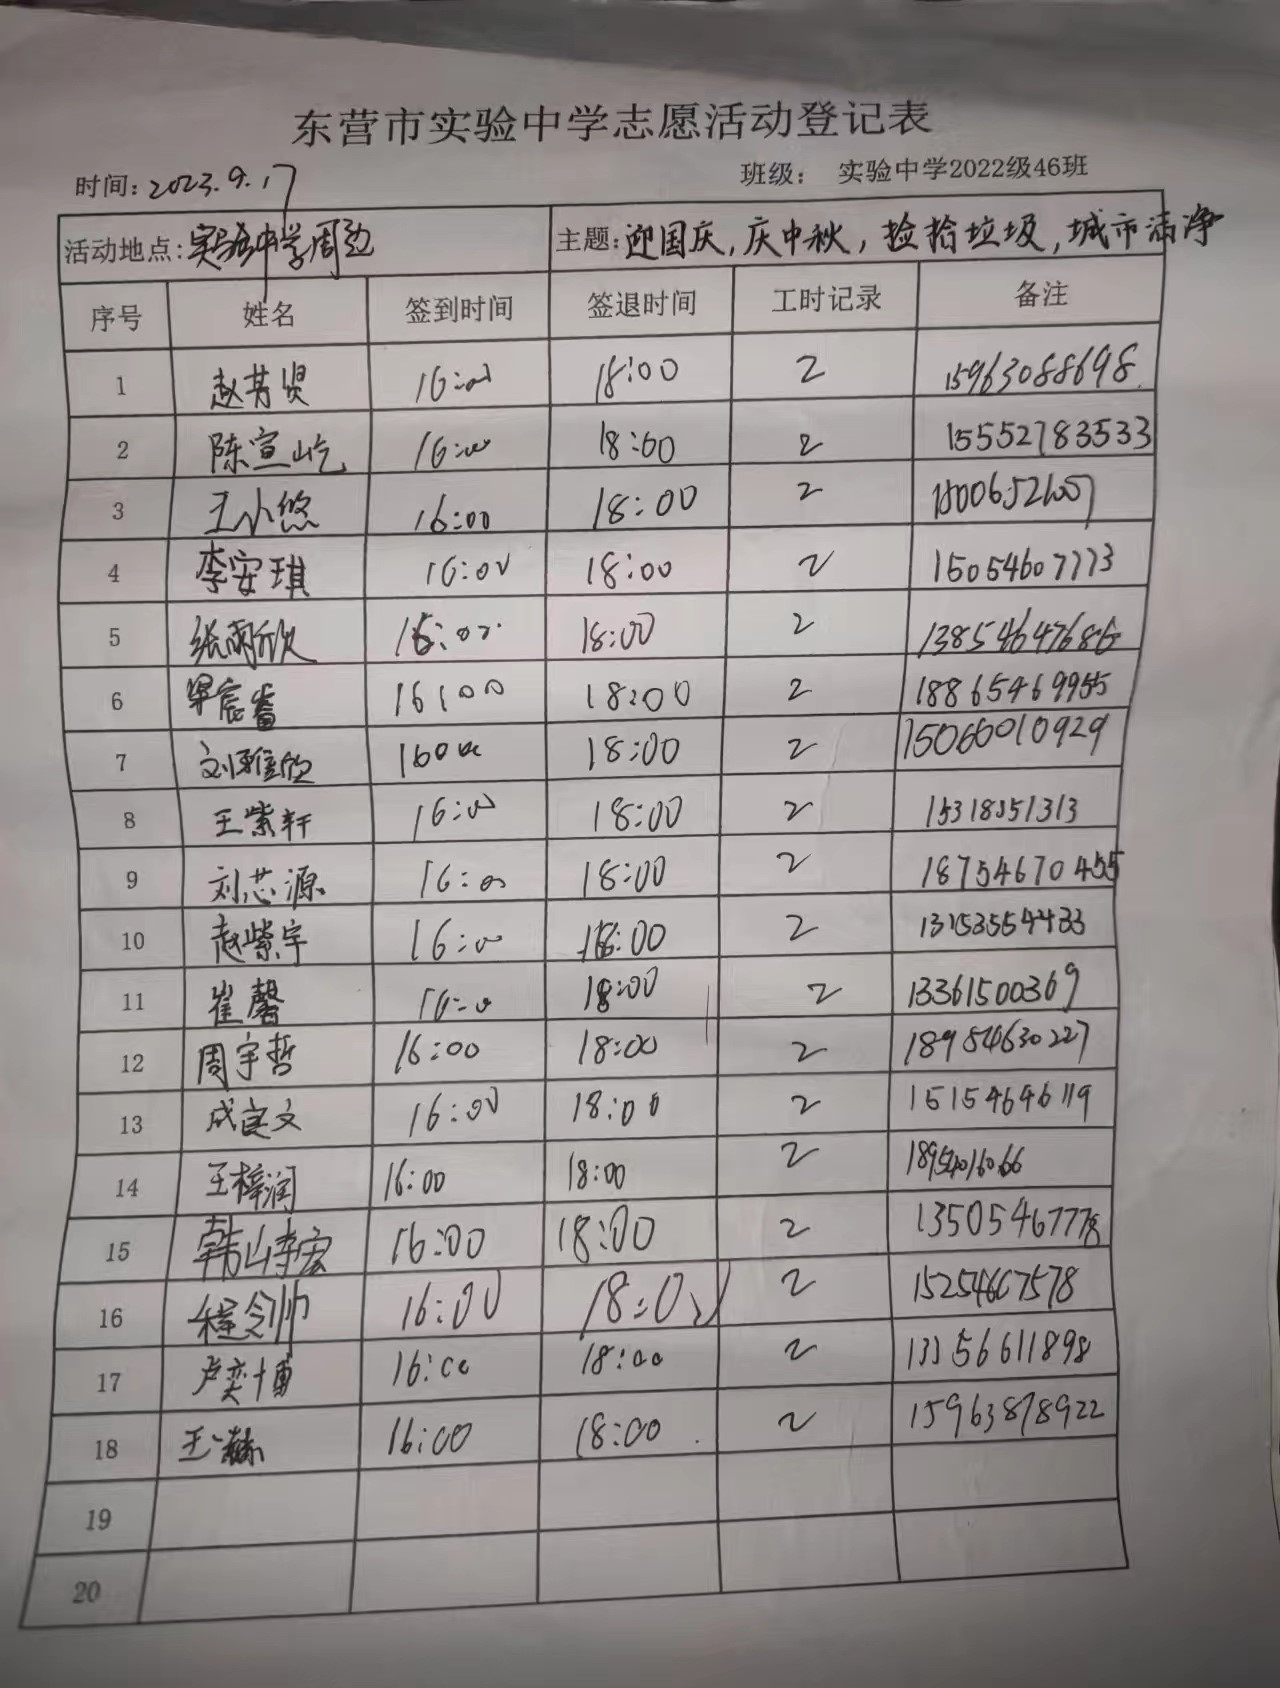 东营市实验中学志愿活动登记表
时间: 2023.9.17 班级: 实验中学2022级46班
活动地点: 实验中学周边 主题: 迎国庆,庆中秋,捡拾垃圾,城市洁净
序号 姓名 签到时间 签退时间 工时记录 备注
1 赵芳贤 16:00 18:00 2 15963088698
2 陈宣屹 16:00 18:00 2 15552783533
3 王小悠 16:00 18:00 2
4 李安琪 16:00 18:00 2 15054607773
5 张雨欣 16:00 18:00 2 13854647686
6 18:00 2 18865469955
7 刘雅欣 18:00 2 15066010929
8 王紫轩 16:00 18:00 2 15318351313
9 刘芯源 16:00 18:00 2 18754670455
10 赵紫宇 16:00 18:00 2
11 崔馨 16:00 18:00 2 13361500369
12 周宇哲 16:00 18:00 2 18954630227
13 成良文 16:00 18:00 2 15154646119
14 王梓润 16:00 18:00 2
15 韩山李宏 16:00 18:00 2 13505467778
16 程令帅 16:00 18:00 2 15254667578
17 卢奕博 16:00 18:00 2 13356611898
18 16:00 18:00 2 15963878922
19
20